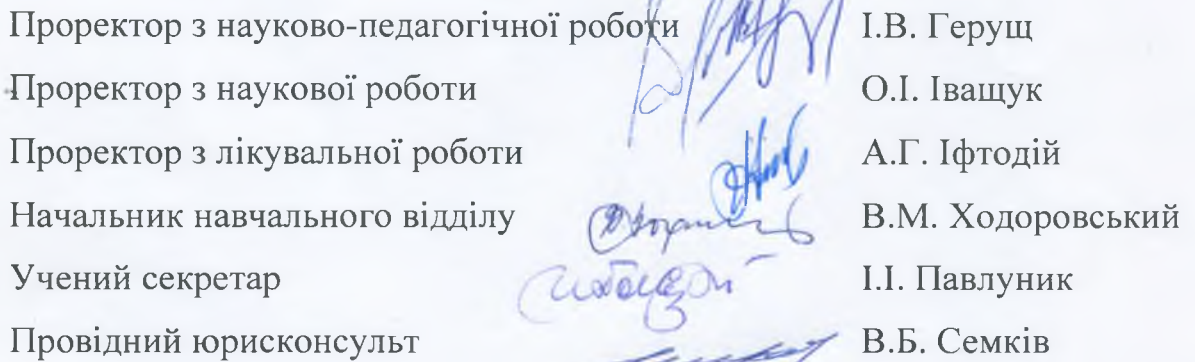 Проректор з науково-педагогічної роботи І.В. Герущ
Проректор з наукової роботи О.І. Іващук
Проректор з лікувальної роботи А.Г. Іфтодій
Начальник навчального відділу В.М. Ходоровський
Учений секретар І.І. Павлуник
Провідний юрисконсульт В.Б. Семків